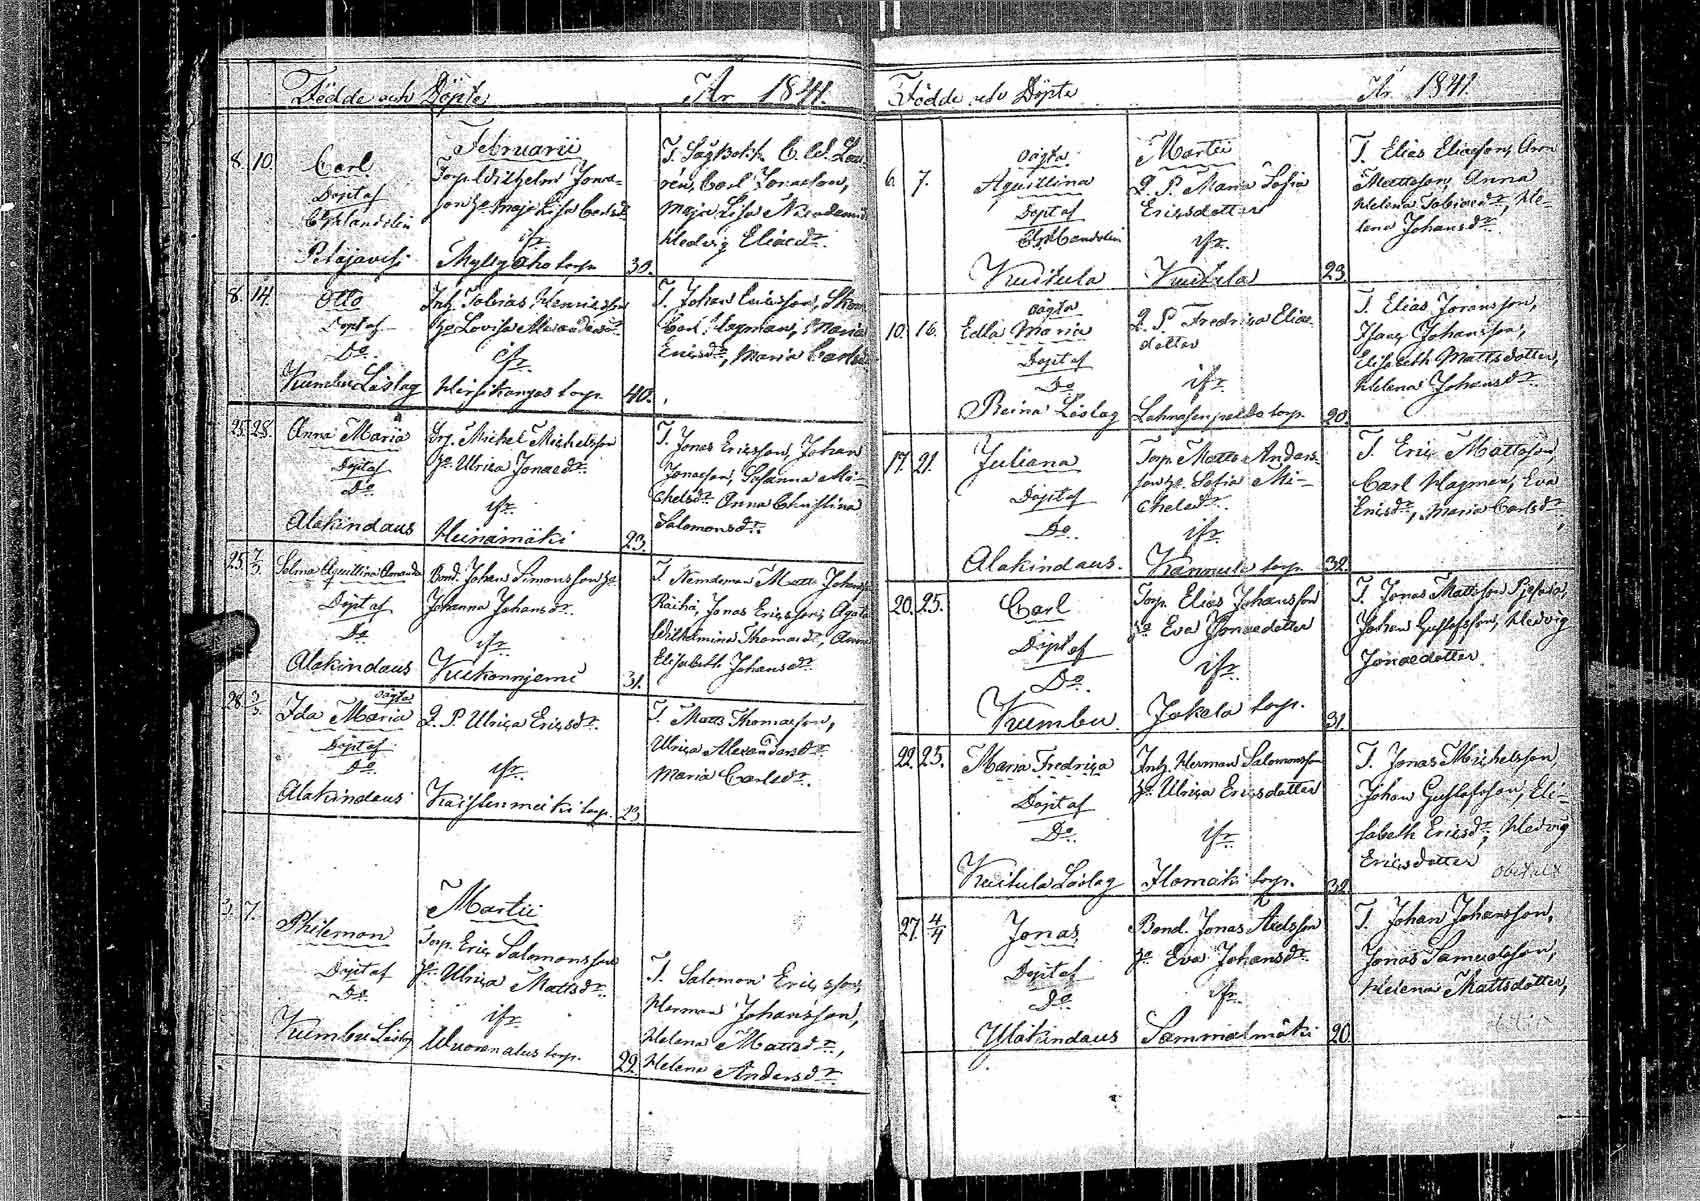 Födde och Döpte År 1841.
Februarii
8. 10. Carl
Döpt af
Petäjävesi
Torp. Wilhelm Jonas-
son Ho Maja Lisa Carlsdr
ifr.
Myllyaho torp. 30.
T. Carl Jonasson,
Maja Lisa
Hedvig Eliaedr.
8. 14. Otto
Döpt af
Do.
Kumbu Låslag
Inh. Tobias Henricsson
Ho Lovisa Alexandersdr
ifr.
Hirsikangas torp. 40.
T. Johan Ericsson,
Carl Hagman, Maria
Ericsdr, Maria Carlsdr
25. 28. Anna Maria
Döpt af
Do.
Alakindaus
Michel Michelsson
Ho Ulrica Jonaedr.
ifr.
Heinämäki 23.
T. Jonas Ericsson, Johan
Jonasson, Susanna Mi-
chelsdr Anna Christina
Salomonsdr.
25. 7/3. Selma Aquillina Amanda
Döpt af
Do.
Alakindaus
Bond. Johan Simonsson Ho
Johanna Johansdr.
ifr.
Kukonnjemi 31.
T. Nämdeman Matts Johansson
Raiha, Jonas Ericsson, Agata
Wilhelmina Thomasdr, Anna
Elisabeth Johansdr.
28. 3/3. oägta
Ida Maria
Döpt af
Do.
Alakindaus
Q. P. Ulrica Ericsdr.
ifr.
torp. 23.
T. Matts Thomasson,
Ulrica Alexandersdr
Maria Carlsdr.
Martii
3. 7. Philemon
Döpt af
Do.
Kumbu Låslag
Torp. Eric Salomonsson
Ho Ulrica Mattsdr.
ifr.
Wuorenalus torp. 29.
T. Salomon Ericsson,
Herman Johansson,
Helena Mattsdr,
Helena Andersdr.
Födde och Döpte År 1841.
Martii
6. 7. oägta
Aquillina
Döpt af
Kuitula
Q. P. Maria Sofia
Ericsdotter
ifr.
Kuitula 23.
T. Elias Eliasson, Aron
Mattsson, Anna
Helena Tobiaedr, He-
lena Johansdr.
10. 16. oägta
Edla Maria
Döpt af
Do
Reina Låslag
Q. P. Fredrica Eliae-
dotter
ifr.
torp. 20.
T. Elias Göransson,
Isaac Johansson,
Elisabeth Mattsdotter,
Helena Johansdr.
17. 21. Juliana
Döpt af
Do.
Alakindaus.
Torp. Matts Anders-
son Ho Sofia Mi-
chelsdr.
ifr.
torp. 32.
T. Eric Mattsson,
Carl Hagman, Eva
Ericsdr, Maria Carlsdr,
20. 25. Carl
Döpt af
Do.
Kumbu
Torp. Elias Johansson
Ho Eva Jonaedotter
ifr.
Jokela torp. 31.
T. Jonas Mattsson
Johan Gustafsson, Hedvig
Jonaedotter
22. 25. Maria Fredrica
Döpt af
Do.
Kuitula Låslag
Inh. Herman Salomonsson
Ho Ulrica Ericsdotter
ifr.
Ilomäki torp. 32.
T. Jonas Michelsson,
Johan Gustafsson, Eli-
sabeth Ericsdr, Hedvig
Ericsdotter
27. 4/4 Jonas
Döpt af
Do.
Yläkindaus
Bond. Jonas
Ho Eva Johansdr.
ifr.
Sammalmäki 20.
T. Johan Johansson,
Jonas Samuelsson,
Helena Mattsdotter,